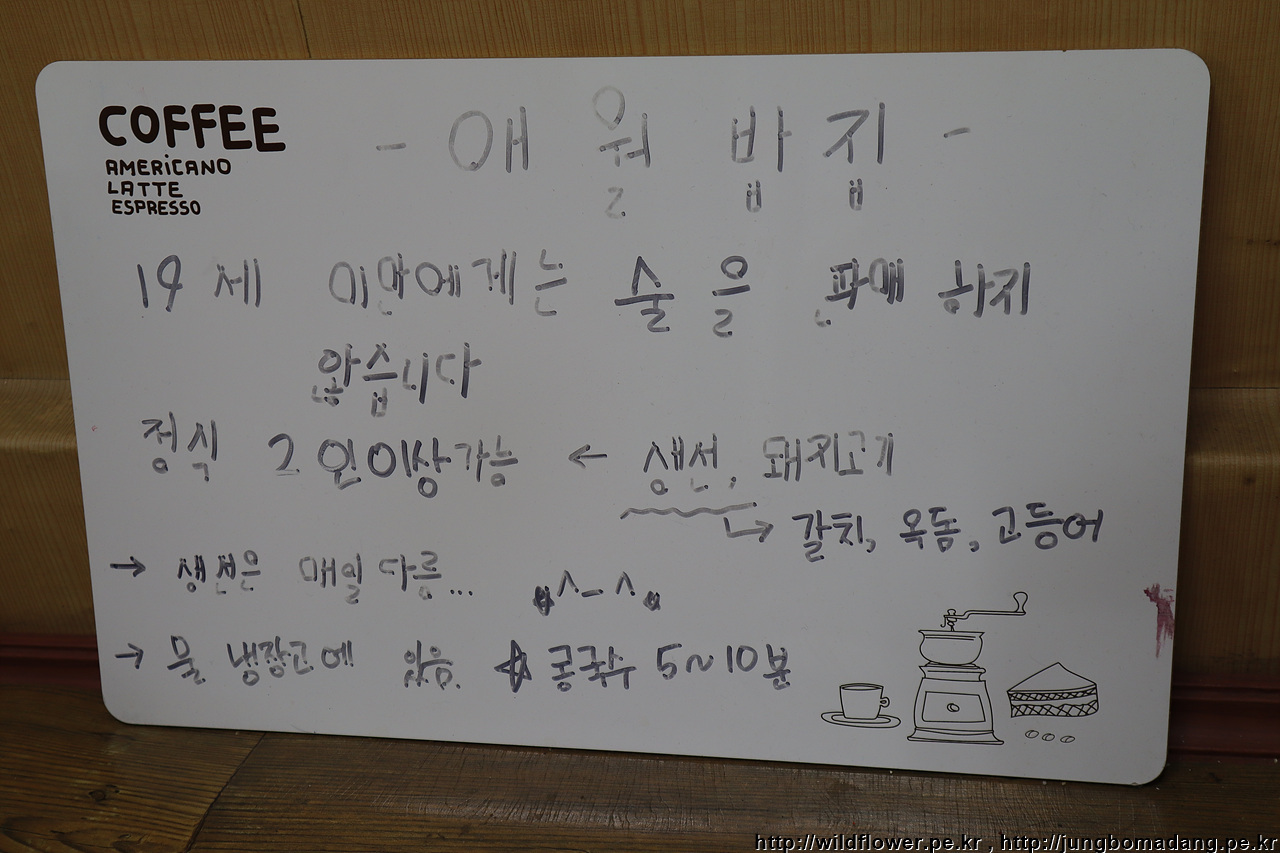 COFFEE
AMERICANO
LATTE
ESPRESSO
- 애월 밥집 -
19세 미만에게는 술을 판매 하지
않습니다
정식 2인이상가능 ← 생선, 돼지고기
→ 갈치, 옥돔, 고등어
→ 생선은 매일 다름... ^-^
→ 물 냉장고에 있음. ☆ 콩국수 5~10분
http://wildflower.pe.kr , http://jungbomadang.pe.kr